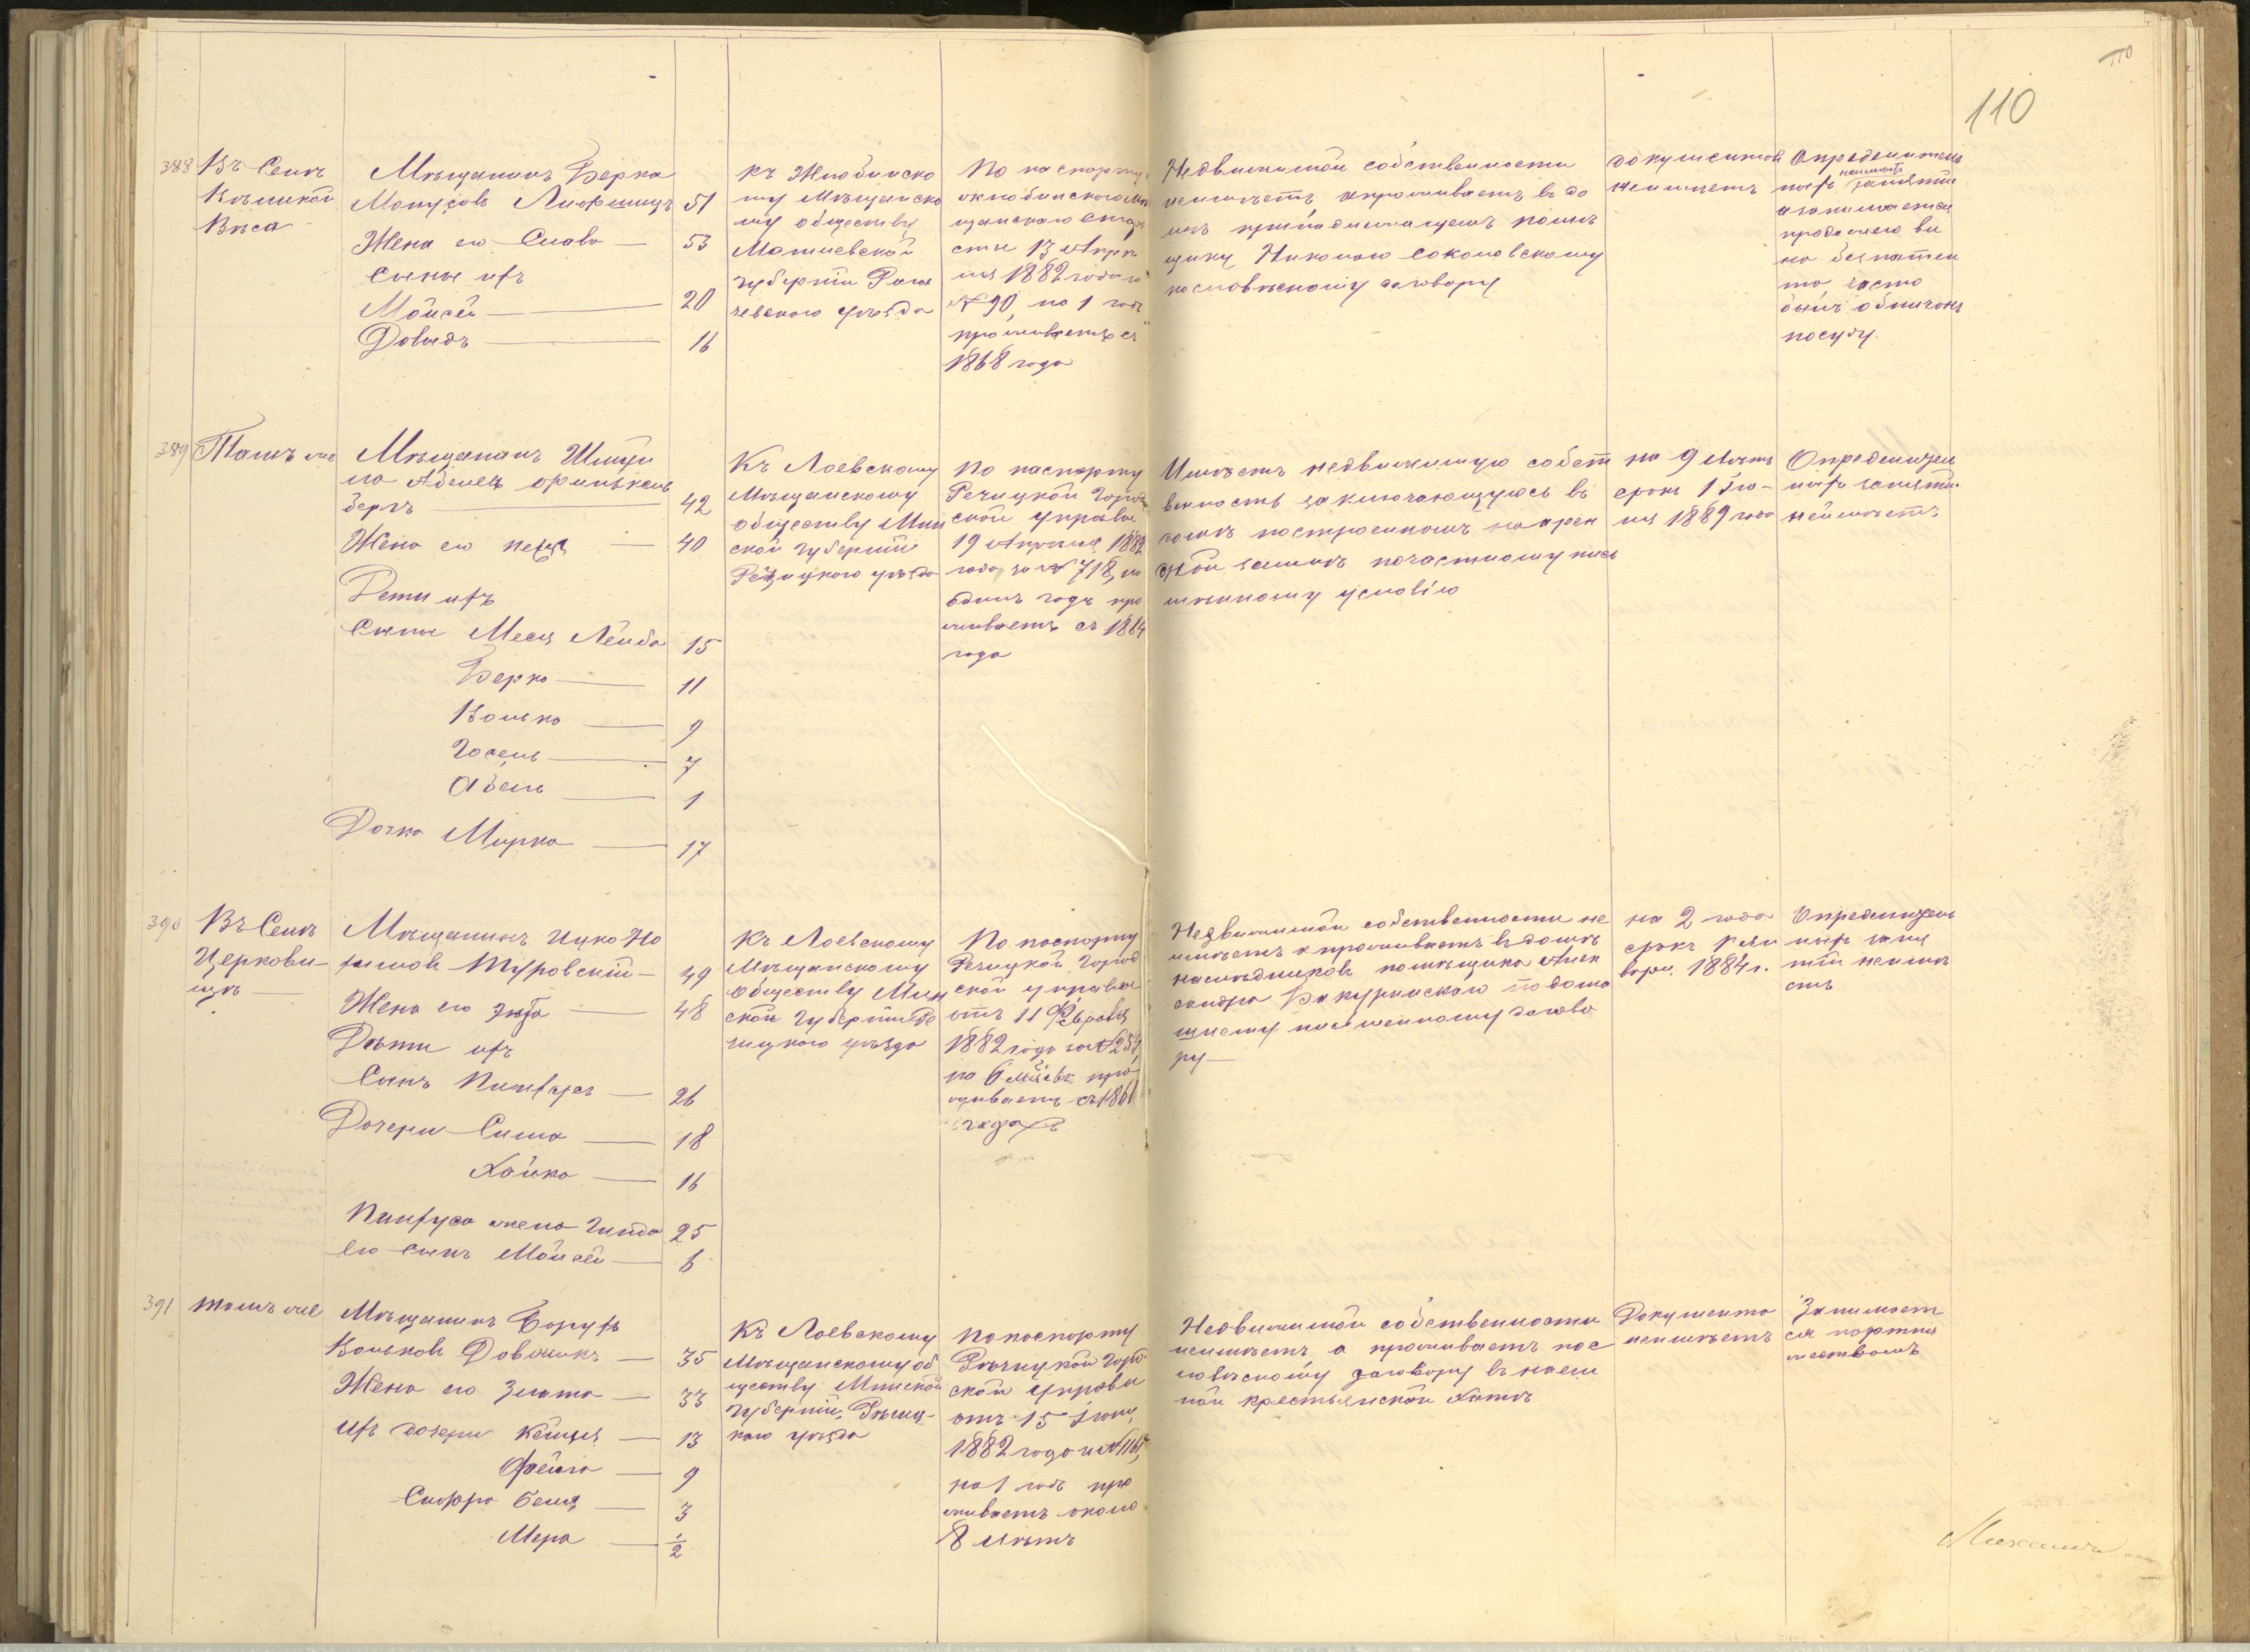 110
110
388
Въ Селѣ
Вѣликой
Виса
Мѣщанинъ Берка
Манусовъ Лифшицъ 51
Жена его Слава — 53
Сыны ихъ
Мойсей — 20
Довидъ — 16
къ Жлобинско
му Мѣщанско
му обществу
Могилевской
губерніи Рога
чевского уѣзда
По паспорту
жлобинского мѣ
щанскаго старо
сты 13 Апрѣ
ля 1882 года за
№ 90, на 1 годъ
проживаетъ съ
1868 года
Недвижимой собственности
неимѣетъ апроживаетъ въ до
мѣ принадлежащемъ помѣ
щику Николаю Соколовскому
пословѣсному договору
документов
неимѣетъ
Опредѣлитель
ныхъ неимѣетъ занятій
азанимается
продажею ви
на безпатен
то, часто
былъ обличонъ
посуду.
389
Тамъ же
Мѣщанинъ Шмуй
ло Абелев Финькель
бергъ — 42
Жена его Песя — 40
Дети ихъ
Сыны Меся Лейба 15
Берко — 11
Волько — 9
Іосель — 7
Абель — 1
Дочка Мирка — 17
Къ Лоевскому
Мѣщанскому
обществу Мин
ской губерніи
Речицкого уѣзда
По паспорту
Речицкой Город
ской управы
19 Апреля 1882
года за № 718, на
одинъ годъ про
живаетъ съ 1864
года
Имѣетъ недвижимую собст
венность заключающуюся въ
домѣ построенномъ на арен
дной землѣ почастному пись
мѣнному условію
на 9 лѣтъ
срокъ 1 Iю-
ля 1889 года
Определител
ныхъ занятій
неимѣетъ
390
Въ Селѣ
Церкови-
щѣ —
Мѣщанинъ Ицко Но
химовъ Туровскій — 49
Жена его Эйда — 48
Дѣти ихъ
Сынъ Пинхусъ — 26
Дочери Сима — 18
Хайка — 16
Пинхуса жена Гинда 25
Его сынъ Мойсей — 6
Къ Лоевскому
Мѣщанскому
обществу Мин
ской губерніи Ре
чицкого уѣзда
По паспорту
Речицкой Город
ской управы
отъ 11 Февраля
1882 года за № 254,
на 6 мѣсяц. про
живаетъ съ 1861
года
Недвижимой собственности не
имѣетъ а проживаетъ въ домѣ
наслѣдниковъ помѣщика Алек
сандра Бакуринскаго по дома
шнему писменному догово
ру —
на 2 года
срокъ 1 Ян
варя 1884 г.
Определитель
ныхъ заня
тій неимѣ
етъ
391
тамъ же
Мѣщанинъ Борухъ
Вольковъ Довжикъ — 35
Жена его Злата — 33
Ихъ дочери Кейля — 13
Фейга — 9
Сифра Беля — 3
Мера — 1/2
Къ Лоевскому
Мѣщанскому об
ществу Минской
губерніи, Рѣчиц-
кого уѣзда
По паспорту
Рѣчицкой Горо
ской управы
отъ 15 Iюня
1882 года за № 1165,
на 1 годъ про
живаетъ около
8 лѣтъ
Недвижимой собственности
неимѣетъ а проживаетъ пос
ловѣсному договору въ наем
ной крестьянской хатѣ
Документа
неимѣетъ
Занимает
ся портня
жествомъ